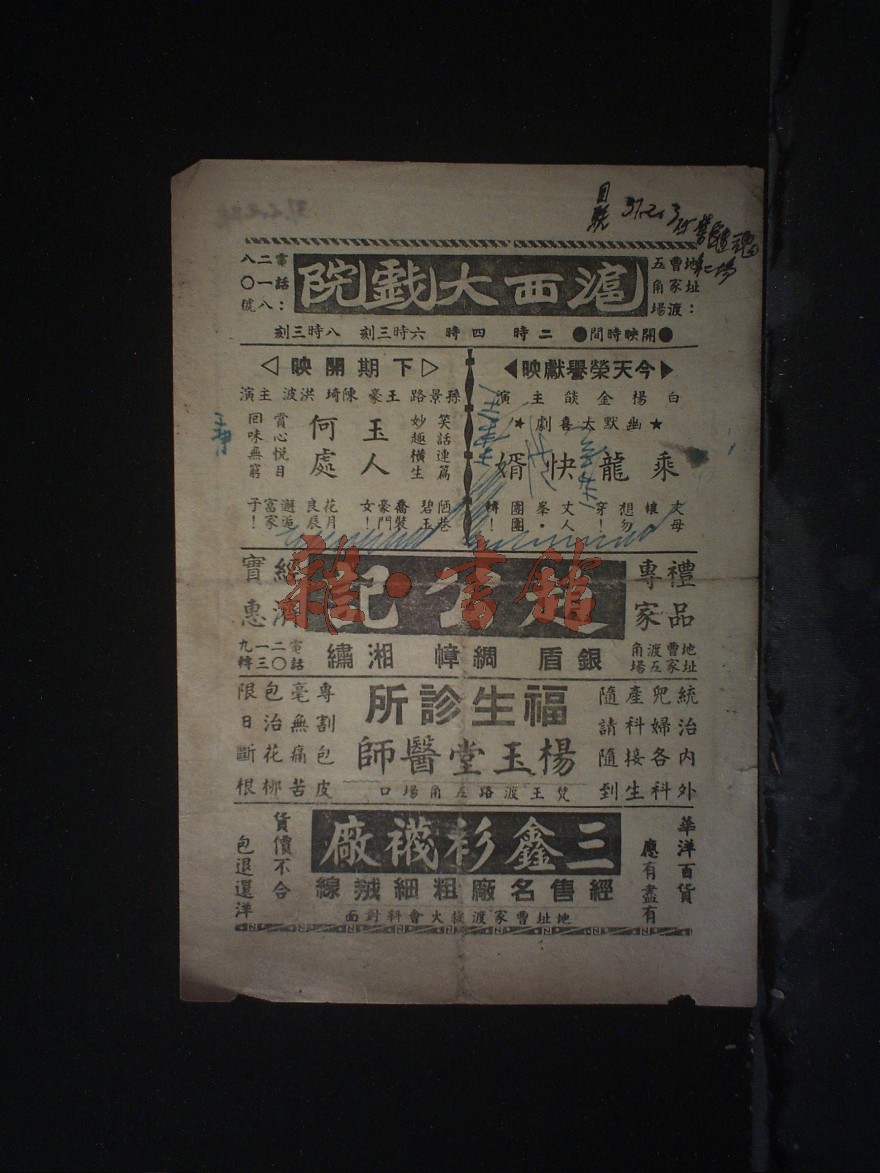 37.2.3
滬西大戲院
地址：曹家渡五角場
電話：二一八〇八號
●開映時間● 二時 四時 六時三刻 八時三刻
▶今天榮譽獻映◀
白楊 金燄 主演
★幽默大喜劇★
乘龍快婿
丈母
想穿！
丈人峯・
團團
▷下期開映◁
孫景路 王豪 陳琦 洪波 主演
笑話連篇
妙趣橫生
玉人何處
賞心悅目
回味無窮
陋巷碧玉
喬裝豪門女！
花月良辰
邂逅富家子！
禮品專家
公記
經濟實惠
地址曹家渡五角場
銀盾 綢幛 湘繡
電話二〇一三九轉
統治內外
兒婦各科
產科接生
隨請隨到
福生診所
楊玉堂醫師
梵王渡路五角場口
專割包皮
毫無痛苦
包治花柳
限日斷根
華洋百貨
應有盡有
三鑫衫襪廠
經售名廠粗細絨線
地址曹家渡救火會斜對面
貨價不合
包退還洋
雜・書館